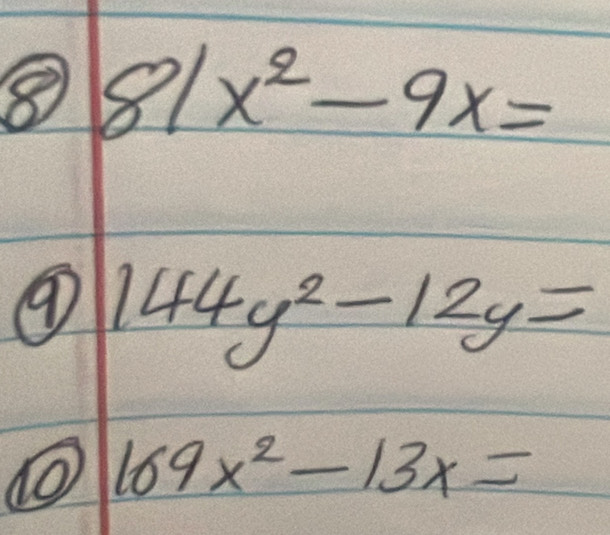 ⑧ 81x² - 9x =
⑨ 144y² - 12y =
⑩ 169x² - 13x =